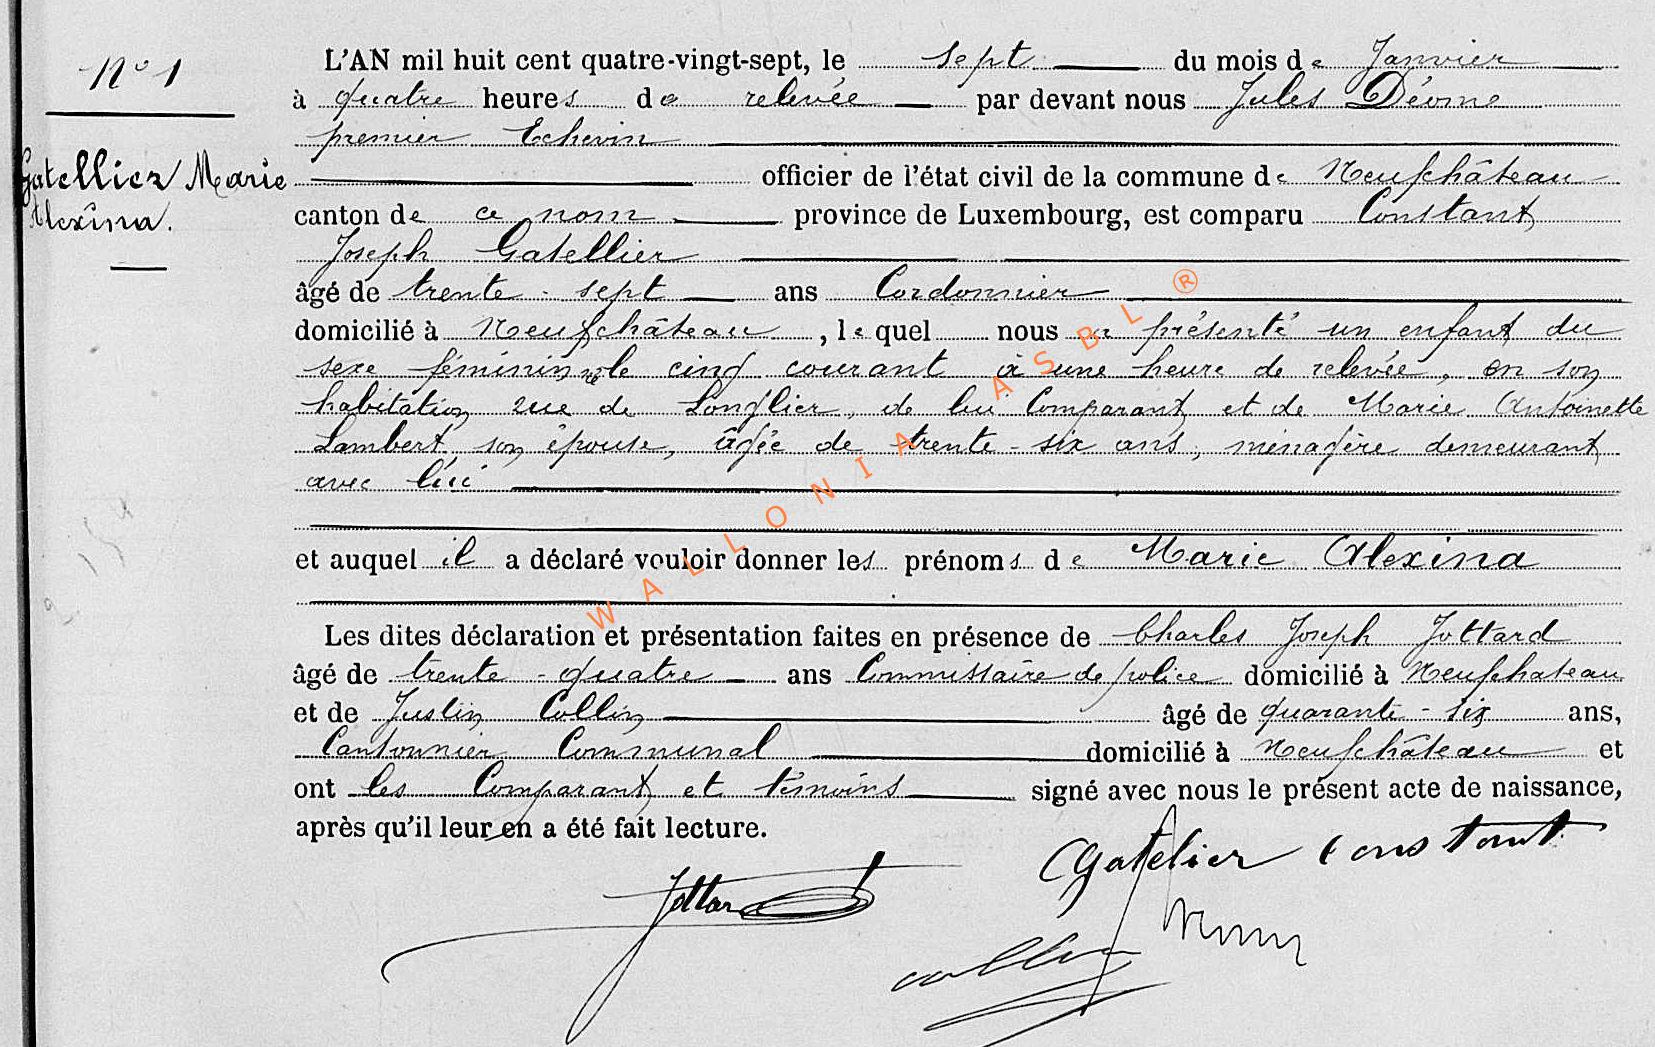 N° 1
Gatellier Marie
Alexina.
L'AN mil huit cent quatre-vingt-sept, le sept du mois de Janvier
à quatre heures de relevée par devant nous Jules
premier Echevin
officier de l'état civil de la commune de Neufchâteau
canton de ce nom province de Luxembourg, est comparu Constant
Joseph Gatellier
âgé de trente-sept ans Cordonnier
domicilié à Neufchâteau, lequel nous a présenté un enfant du
sexe féminin né le cinq courant à une heure de relevée, en son
habitation rue de Longlier, de lui Comparant et de Marie Antoinette
Lambert, son épouse, âgée de trente-six ans, ménagère demeurant
avec lui
et auquel il a déclaré vouloir donner les prénoms de Marie Alexina
Les dites déclaration et présentation faites en présence de Charles Joseph Jottard
âgé de trente-quatre ans Commissaire de police domicilié à Neufchateau
et de Justin Collin âgé de quarante-six ans,
Cantonnier Communal domicilié à Neufchâteau et
ont les Comparant et témoins signé avec nous le présent acte de naissance,
après qu'il leur en a été fait lecture.
Gatelier Constant
Jottard
Collin
WALLONIA ASBL ®